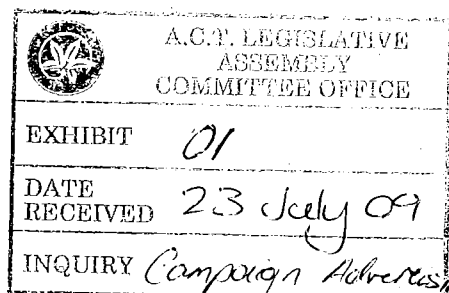 A.C.T. LEGISLATIVE
ASSEMBLY
COMMITTEE OFFICE
EXHIBIT 01
DATE
RECEIVED 23 July 09
INQUIRY Campaign Advertis